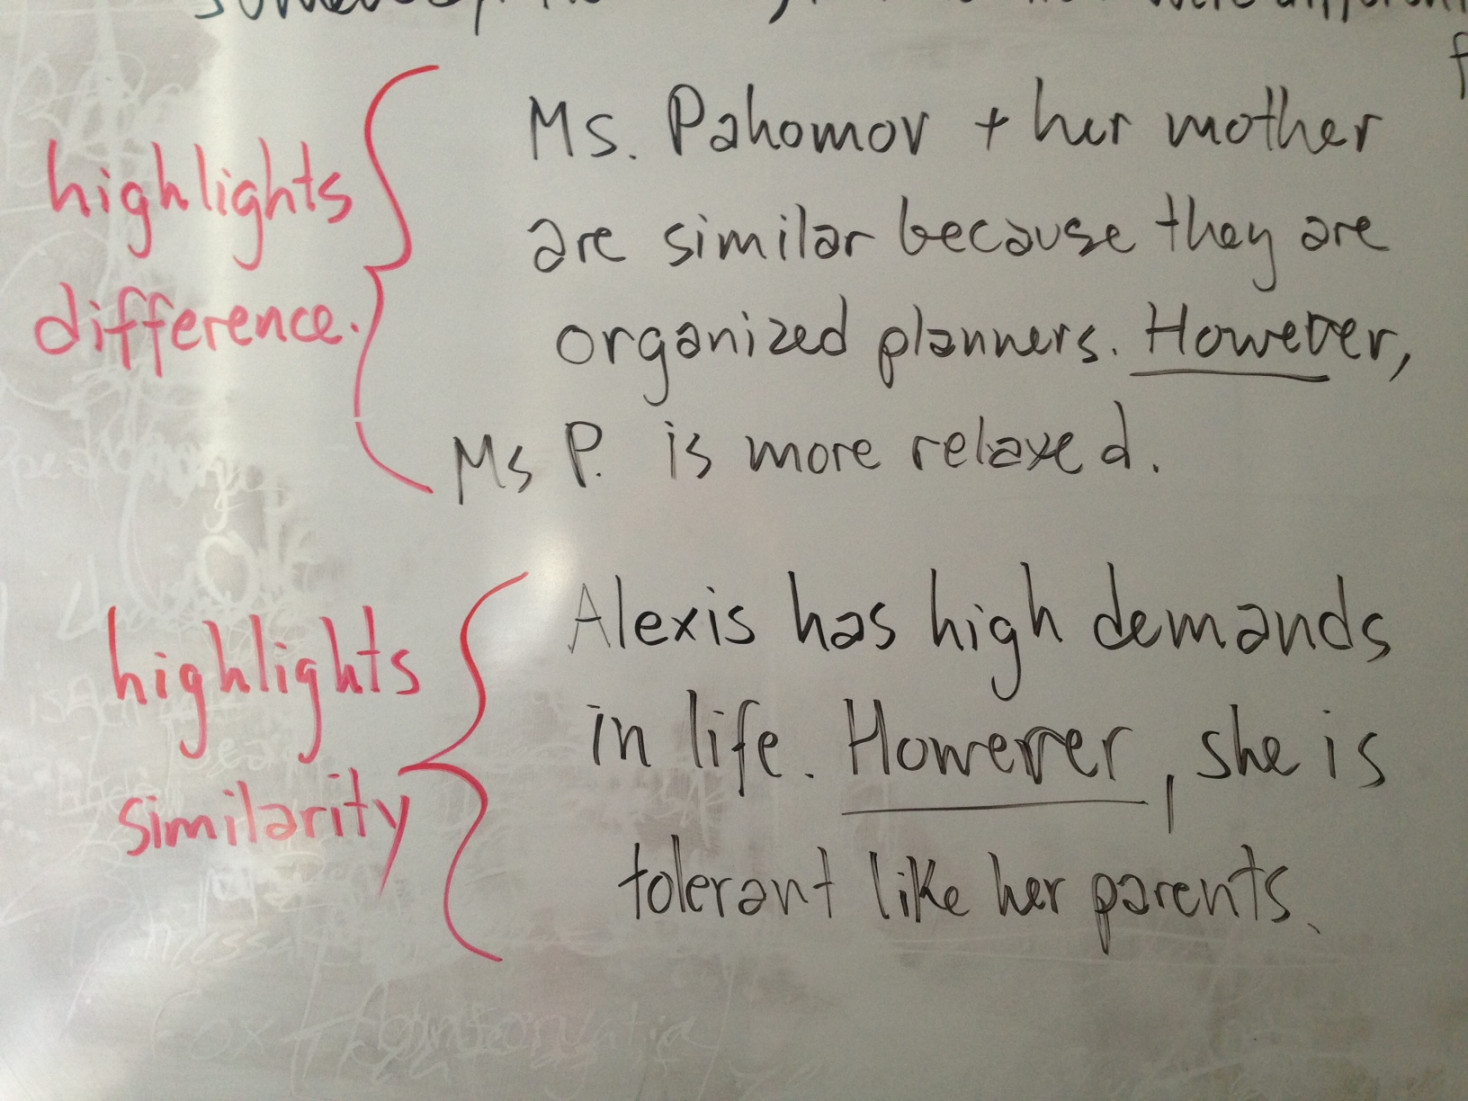 highlights
difference.
Ms. Pahomov + her mother
are similar because they are
organized planners. However,
Ms P. is more relaxed.
highlights
similarity
Alexis has high demands
in life. However, she is
tolerant like her parents.